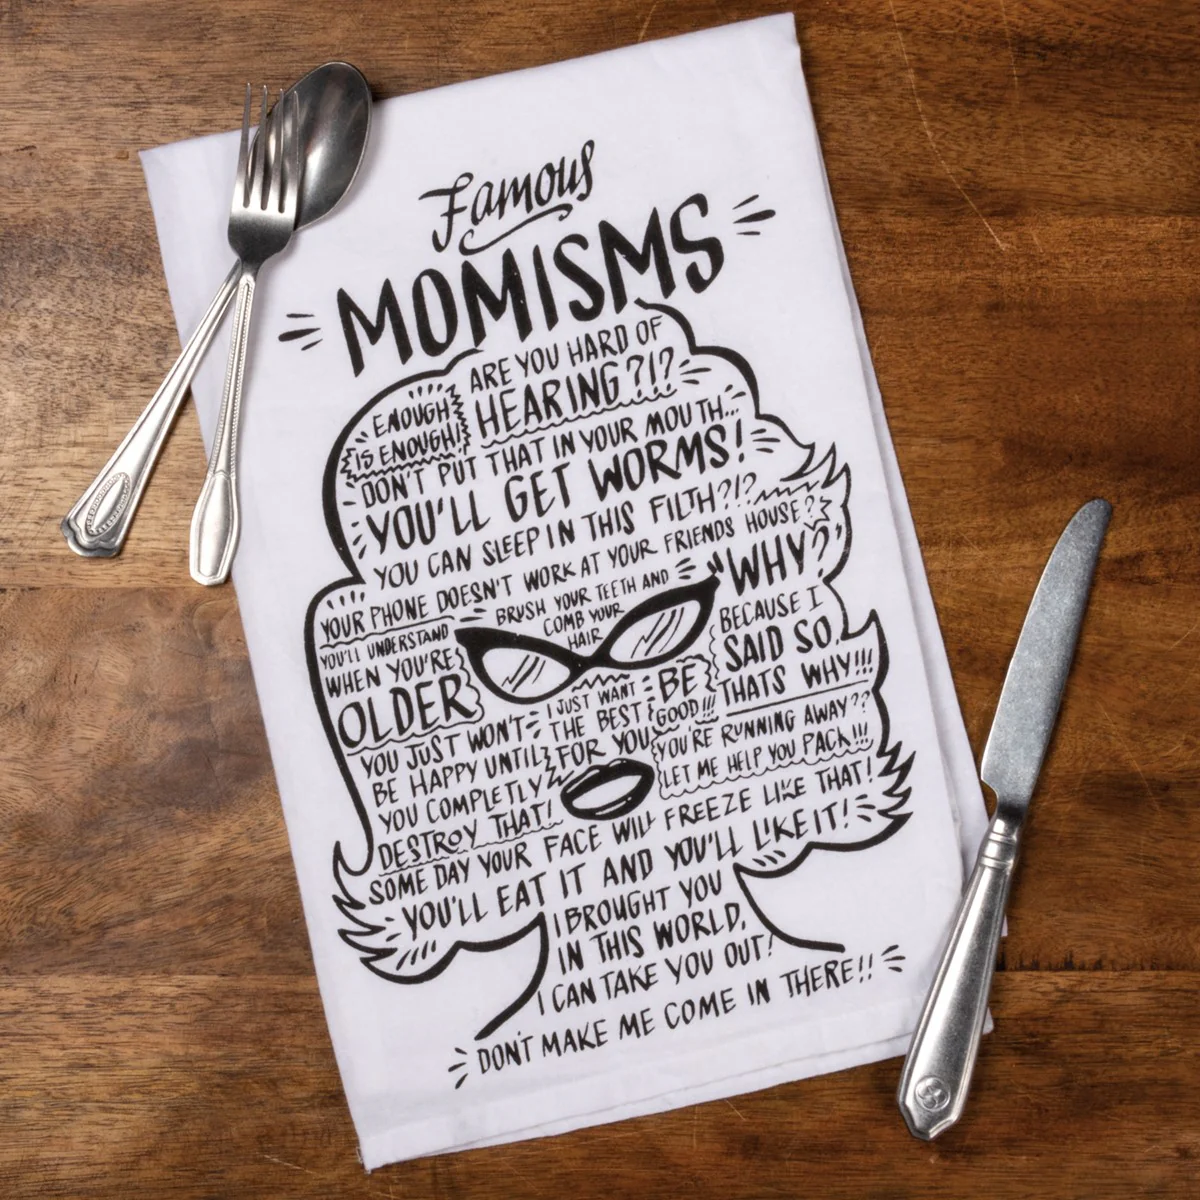 Famous
MOMISMS
ARE YOU HARD OF
HEARING?!?
ENOUGH
IS ENOUGH!
DON'T PUT THAT IN YOUR MOUTH...
YOU'LL GET WORMS!
YOU CAN SLEEP IN THIS FILTH?!?
YOUR PHONE DOESN'T WORK AT YOUR FRIENDS HOUSE?
BRUSH YOUR TEETH AND
COMB YOUR
HAIR
"WHY?"
BECAUSE I
SAID SO,
THATS WHY!!!
YOU'LL UNDERSTAND
WHEN YOU'RE
OLDER
I JUST WANT
THE BEST
FOR YOU
BE
GOOD!!!
YOU'RE RUNNING AWAY??
LET ME HELP YOU PACK!!!
YOU JUST WON'T
BE HAPPY UNTIL
YOU COMPLETLY
DESTROY THAT!
SOME DAY YOUR FACE WILL FREEZE LIKE THAT!
YOU'LL EAT IT AND YOU'LL LIKE IT!
I BROUGHT YOU
IN THIS WORLD,
I CAN TAKE YOU OUT!
DON'T MAKE ME COME IN THERE!!